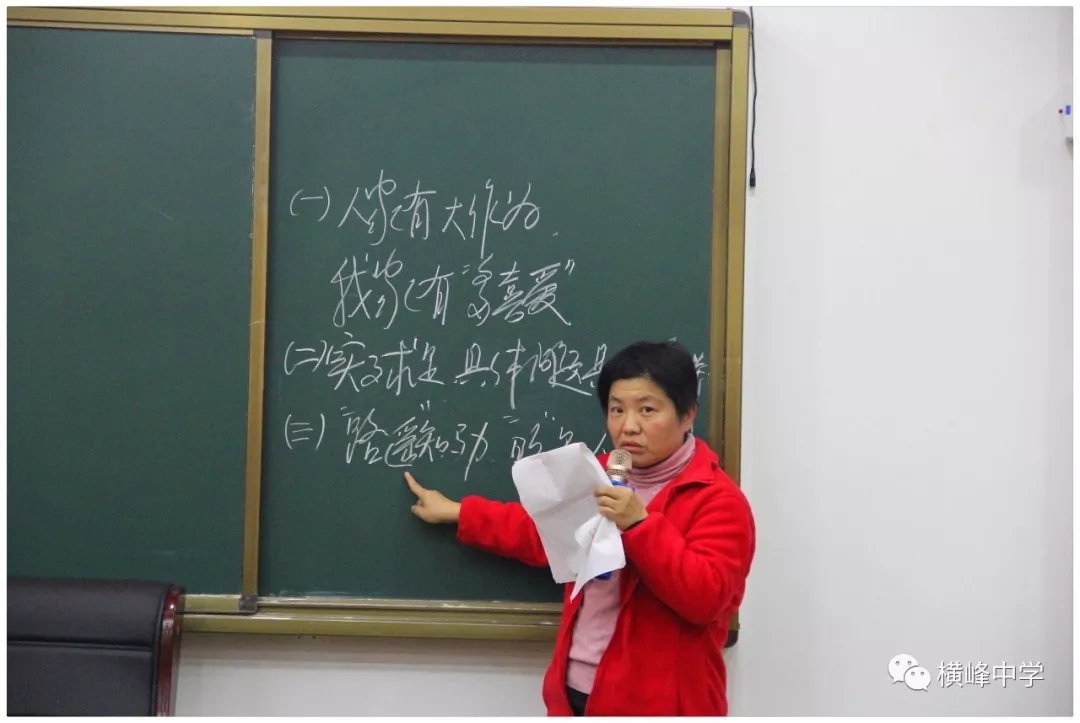 (一)人家有大作为.
我家有"多喜爱"
(二)实事求是 具体问题具
(三)"路遥"知马力 "
横峰中学